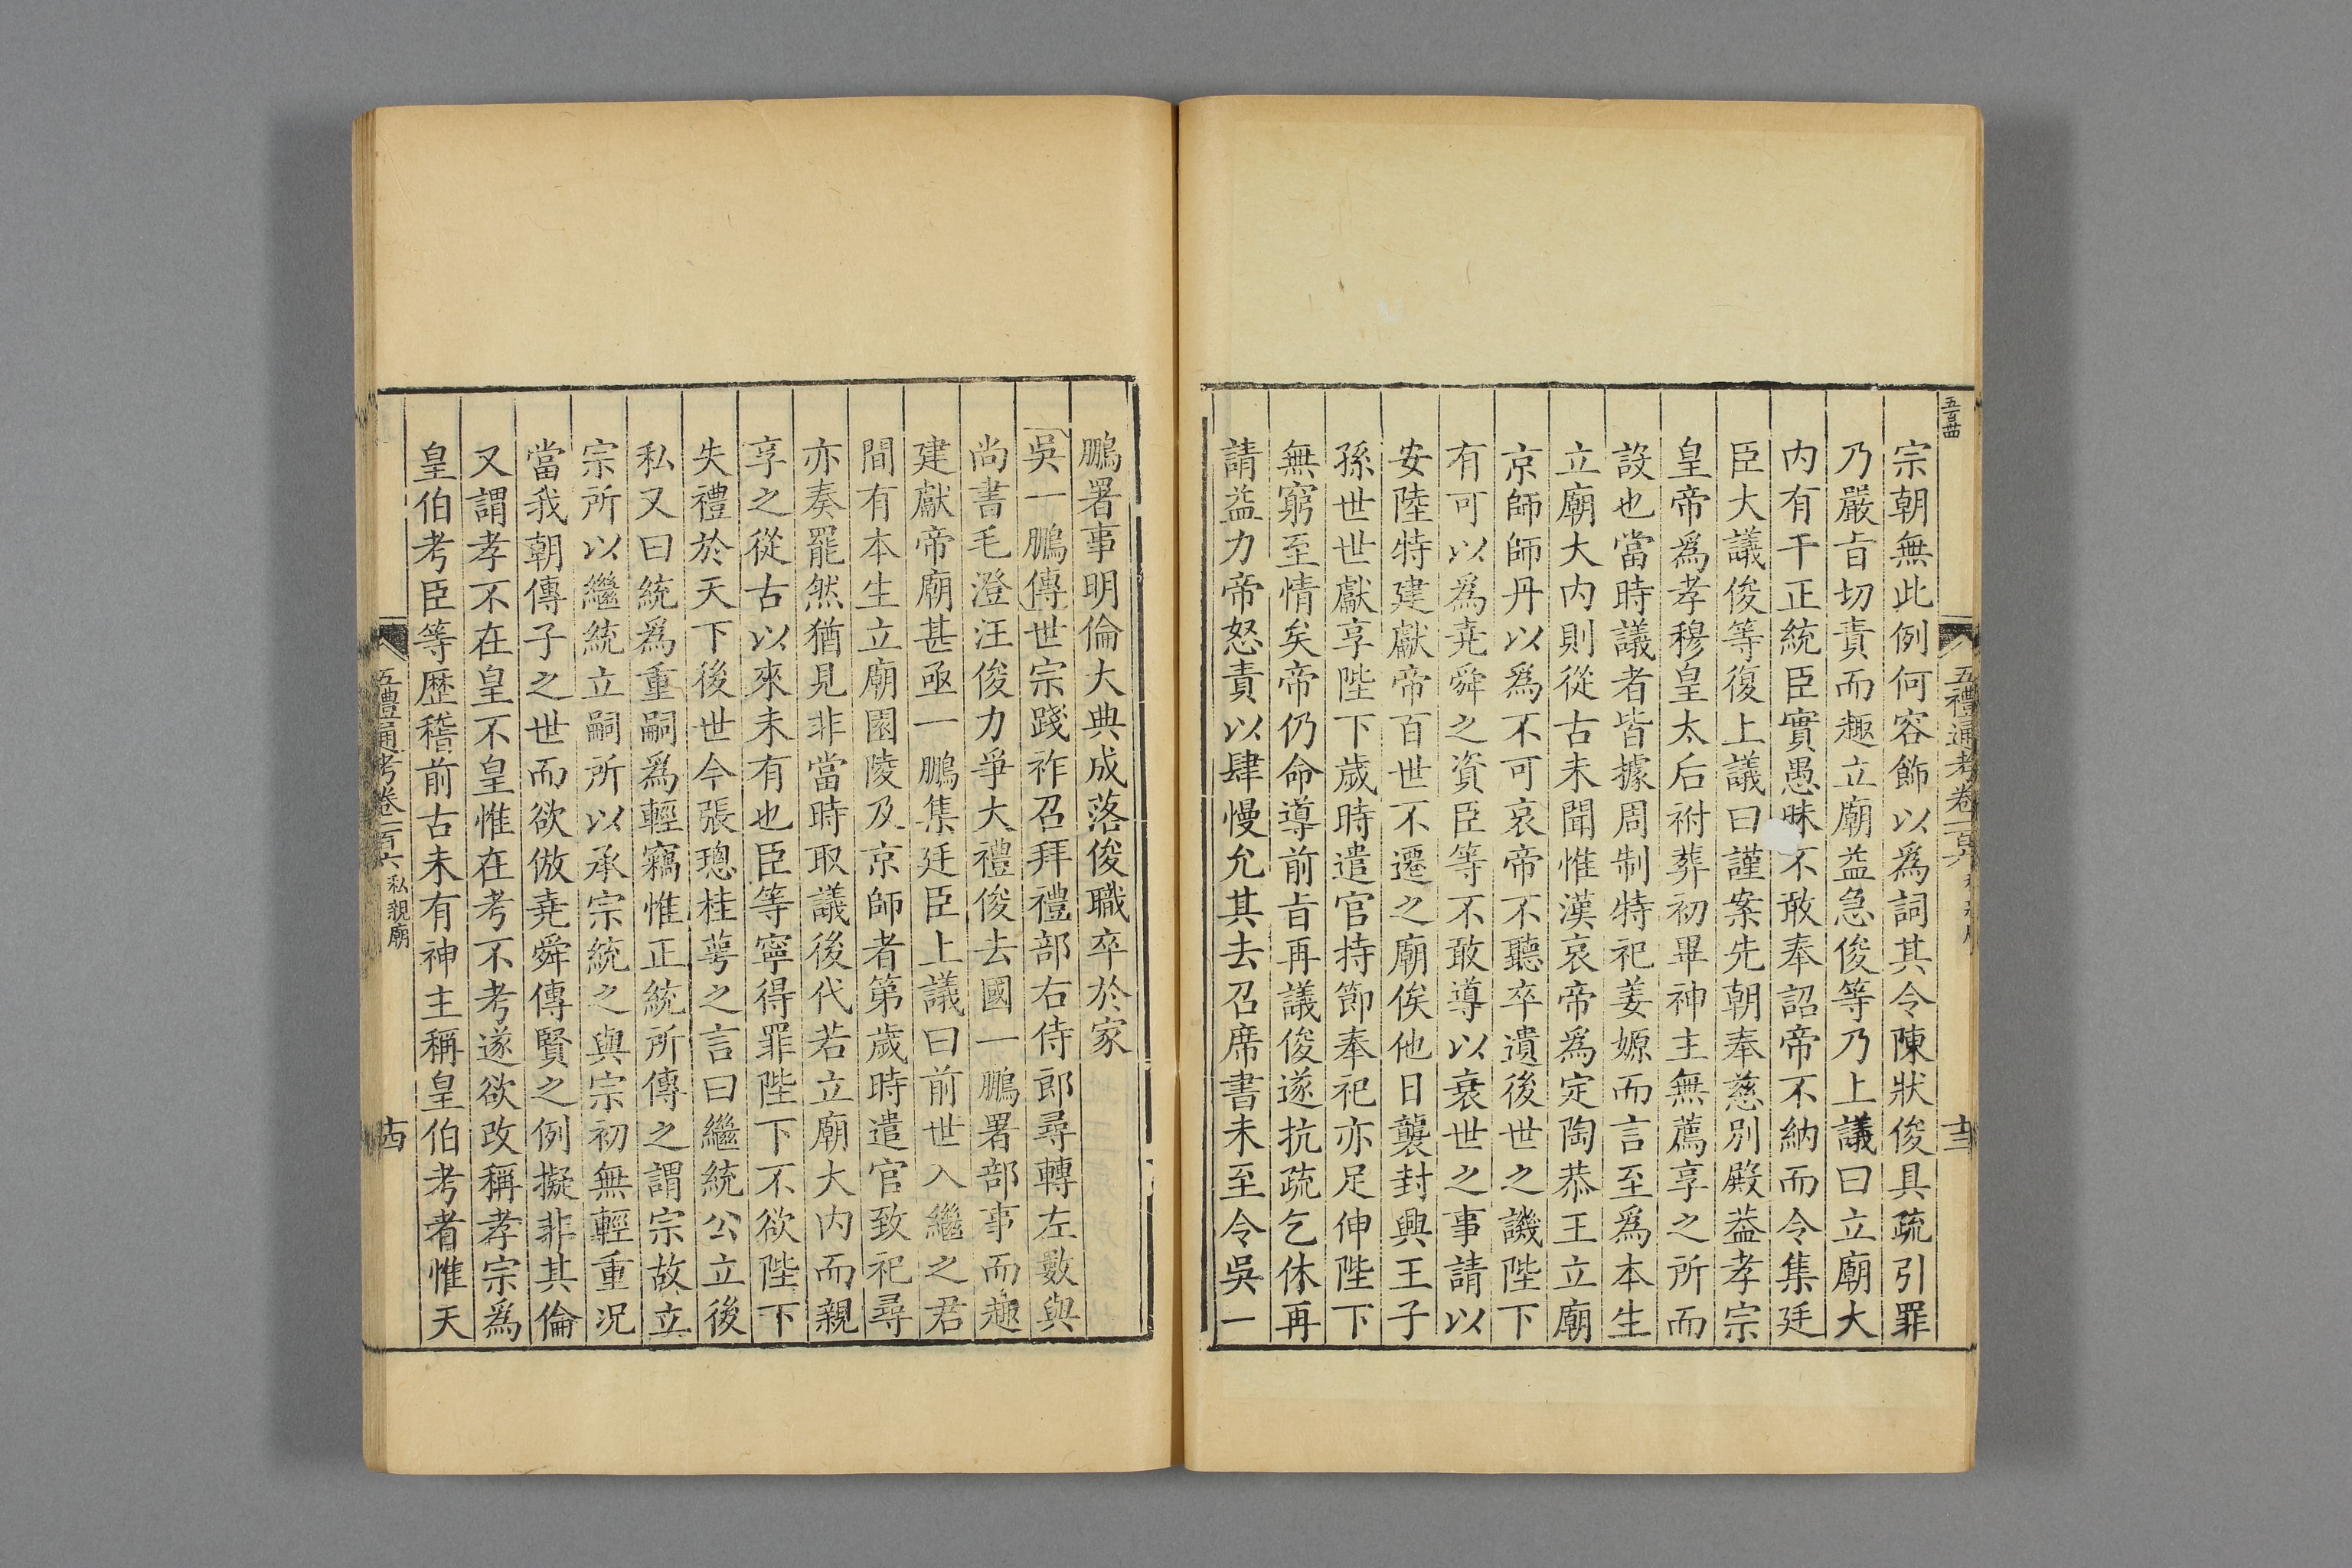 五禮通考卷一百六
宗朝無此例何容飾以爲詞其令陳狀俊具疏引罪
乃嚴旨切責而趣立廟益急俊等乃上議曰立廟大
内有干正統臣實愚昧不敢奉詔帝不納而令集廷
臣大議俊等復上議曰謹案先朝奉慈別殿葢孝宗
皇帝爲孝穆皇太后祔葬初畢神主無薦享之所而
設也當時議者皆據周制特祀姜嫄而言至爲本生
立廟大内則從古未聞惟漢哀帝爲定陶恭王立廟
京師師丹以爲不可哀帝不聽卒遺後世之譏陛下
有可以爲堯舜之資臣等不敢導以衰世之事請以
安陸特建獻帝百世不遷之廟俟他日襲封興王子
孫世世獻享陛下歲時遣官持節奉祀亦足伸陛下
無窮至情矣帝仍命導前旨再議俊遂抗疏乞休再
請益力帝怒責以肆慢允其去召席書未至令吳一
鵬署事明倫大典成落俊職卒於家
吳一鵬傳世宗踐祚召拜禮部右侍郎尋轉左數與
尚書毛澄汪俊力爭大禮俊去國一鵬署部事而趣
建獻帝廟甚亟一鵬集廷臣上議曰前世入繼之君
間有本生立廟園陵及京師者第歲時遣官致祀尋
亦奏罷然猶見非當時取議後代若立廟大内而親
享之從古以來未有也臣等寧得罪陛下不欲陛下
失禮於天下後世今張璁桂萼之言曰繼統公立後
私又曰統爲重嗣爲輕竊惟正統所傳之謂宗故立
宗所以繼統立嗣所以承宗統之與宗初無輕重况
當我朝傳子之世而欲倣堯舜傳賢之例擬非其倫
又謂孝不在皇不皇惟在考不考遂欲改稱孝宗爲
皇伯考臣等歴稽前古未有神主稱皇伯考者惟天
五禮通考卷一百六 私親廟
十四